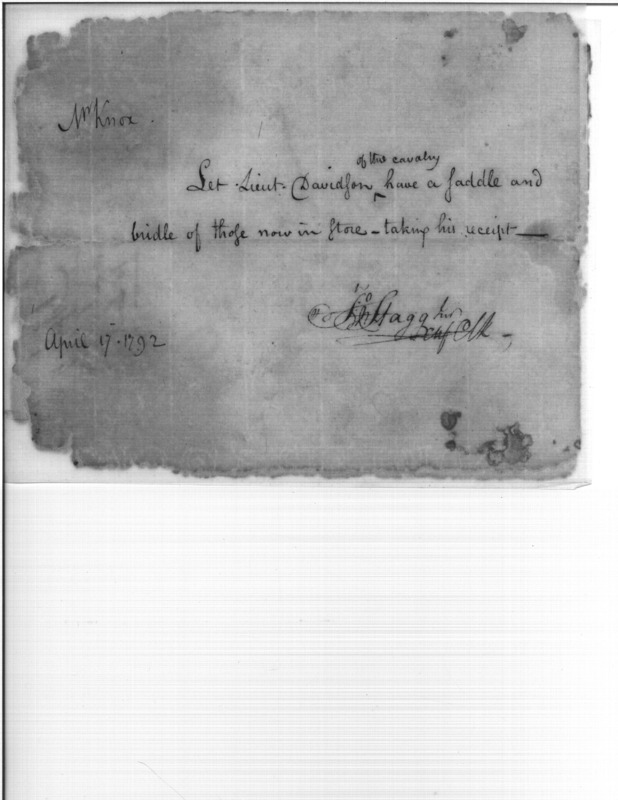 Mr Knox.
of the cavalry
Let Lieut. Davidson ^ have a saddle and
bridle of those now in store – taking his receipt —
Jno Stagg Junr
Chf Clk –
April 17. 1792